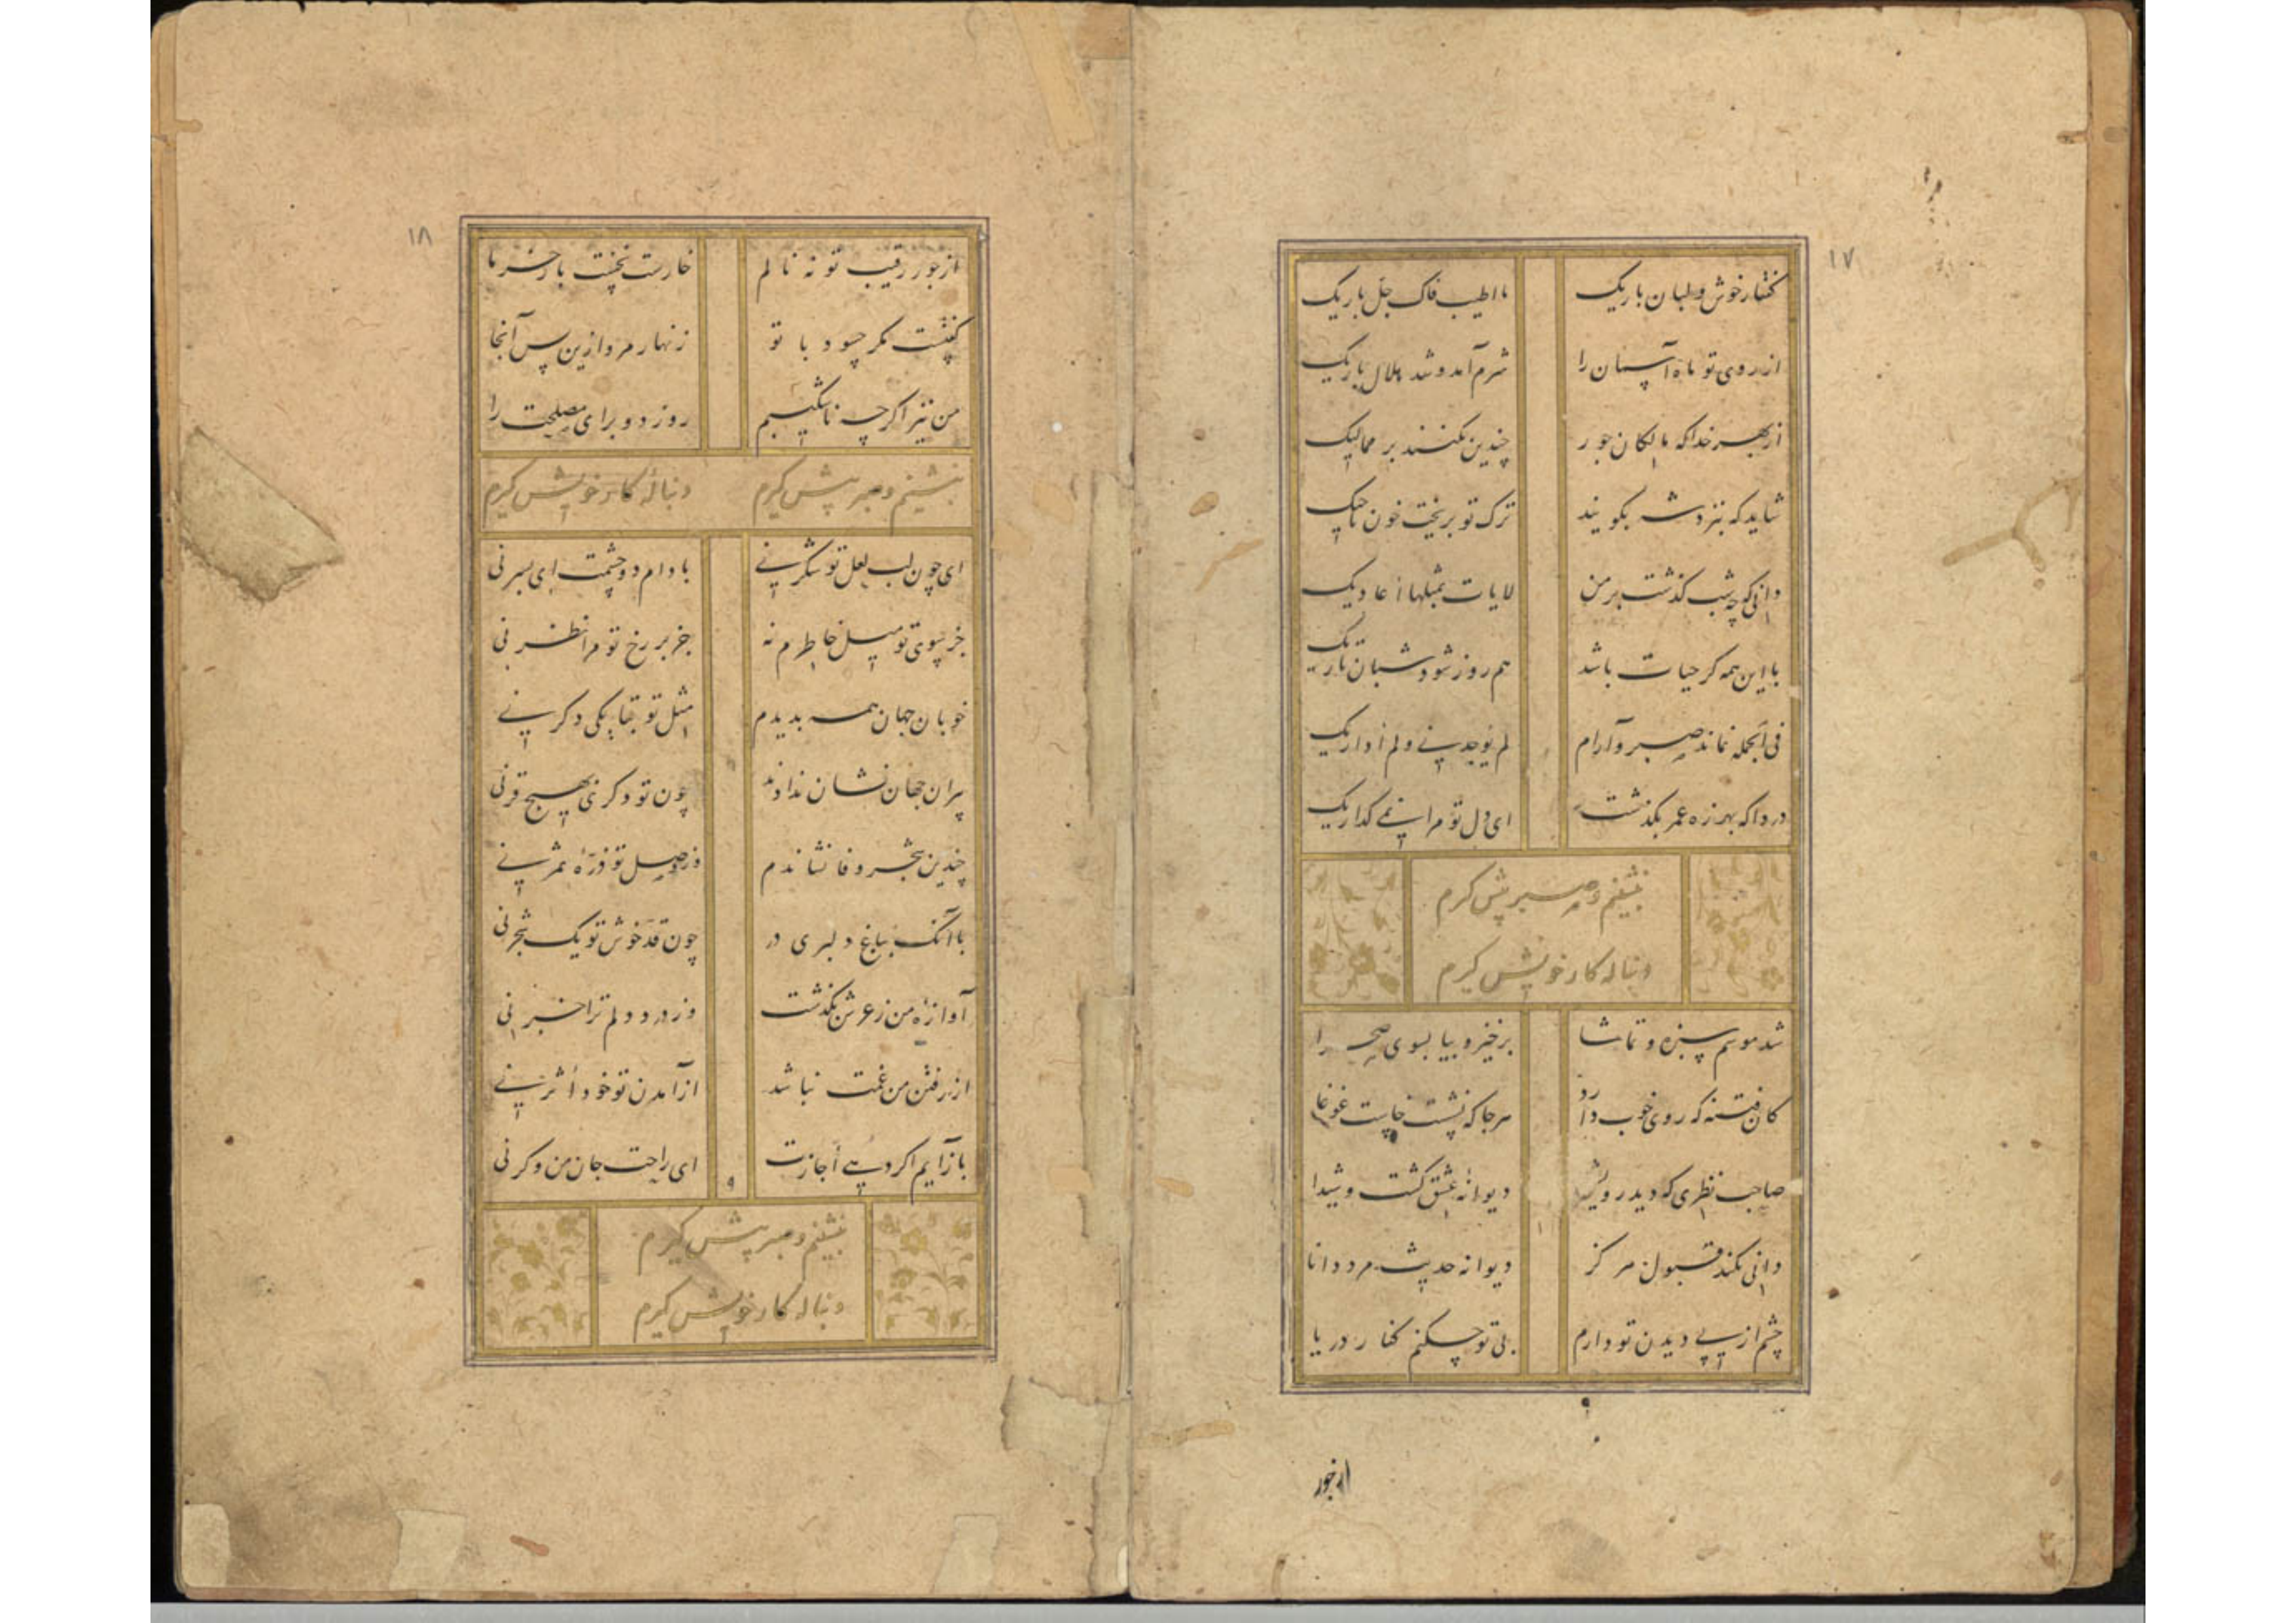 ۱۷
گفتار خوش و لبان باریک ما اطیب فاک جل باریک
از روی تو ماه آسمان را شرم آمد و شد هلال باریک
از بهر خدا که مالکان جور چندین نکنند بر ممالیک
شاید که بنزدش بگویند ترک تو بریخت خون تاجیک
دانی که چه شب گذشت بر من لایات بمثلها أعادیک
با این همه گر حیات باشد هم روز شود شبان تاریک
فی الجمله نماند صبر و آرام لم توجدنی و لم أداریک
دردا که بهرزه عمر بگذشت ای دل تو مرا نمی گذاریک
بنشینم و صبر پیش گیرم
دنباله کار خویش گیرم
شد موسم سبزه و تماشا برخیز و بیا بسوی صحرا
کان فتنه که روی خوب دارد هرجا که نشست خاست غوغا
صاحب نظری که دید رویش دیوانهٔ عشق گشت و شیدا
دانی نکند قبول هرگز دیوانه حدیث مرد دانا
چشم از پی دیدن تو دارم بی تو چکنم کنار دریا
از جور
۱۸
از جور رقیب تو نه نالم خارست نخست بار خرما
گفتست مگر حسود با تو زنهار مرو ازین پس آنجا
من نیز اگر چه ناشکیبم روز دو برای مصلحت را
بنشینم و صبر پیش گیرم دنبالهٔ کار خویش گیرم
ای چون لب لعل تو شکر نی بادام دو چشمت ای پسر نی
جز سوی تو میل خاطرم نه جز بر رخ تو مرا نظر نی
خوبان جهان همه بدیدم مثل تو بقا یکی دگر نی
پیران جهان نشان ندادند چون تو دگر بهیچ قرنی
چندین شجر وفا نشاندم وز وصل تو ذرهٔ ثمر نی
با آنک بباغ دلبری در چون قد خوش تو یک شجر نی
آوازهٔ من ز عرش بگذشت وز درد دلم ترا خبر نی
از رفتن من غمت نباشد از آمدن تو خود أثر نی
باز آیم اگر دهی أجازت ای راحت جان من وگر نی
بنشینم و صبر پیش گیرم
دنباله کار خویش گیرم